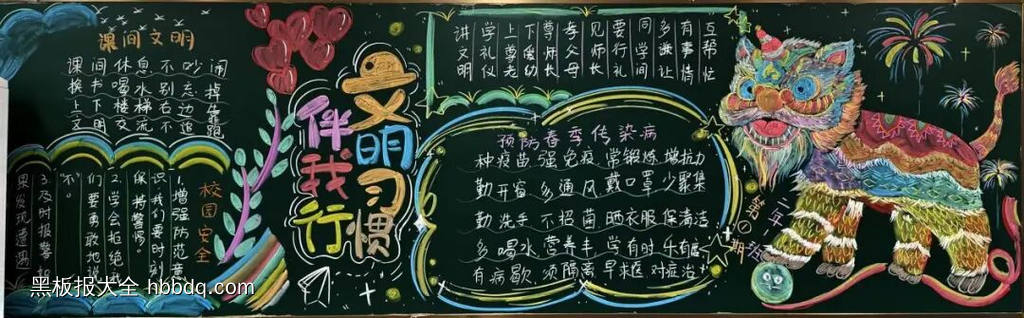 课间文明
课间休息不吵闹
换书喝水别忘掉
上下楼梯右边靠
文明交流不追跑
校园安全
1.增强防范意
识,我们要时刻
保持警惕。
2.学会拒绝,我
们要勇敢地说
“不”。
3.及时报警,如
果发现遭遇
文明习惯
伴我行
讲文明
学礼仪
上尊老
下爱幼
尊师长
孝父母
见师长
要行礼
同学间
多谦让
有事情
互帮忙
预防春季传染病
种疫苗 强免疫 常锻炼 增抗力
勤开窗 多通风 戴口罩 少聚集
勤洗手 不招菌 晒衣服 保清洁
多喝水 营养丰 学有时 乐有度
有病歇 须隔离 早求医 对症治
二年一班
第①期
黑板报大全 hbbdq.com